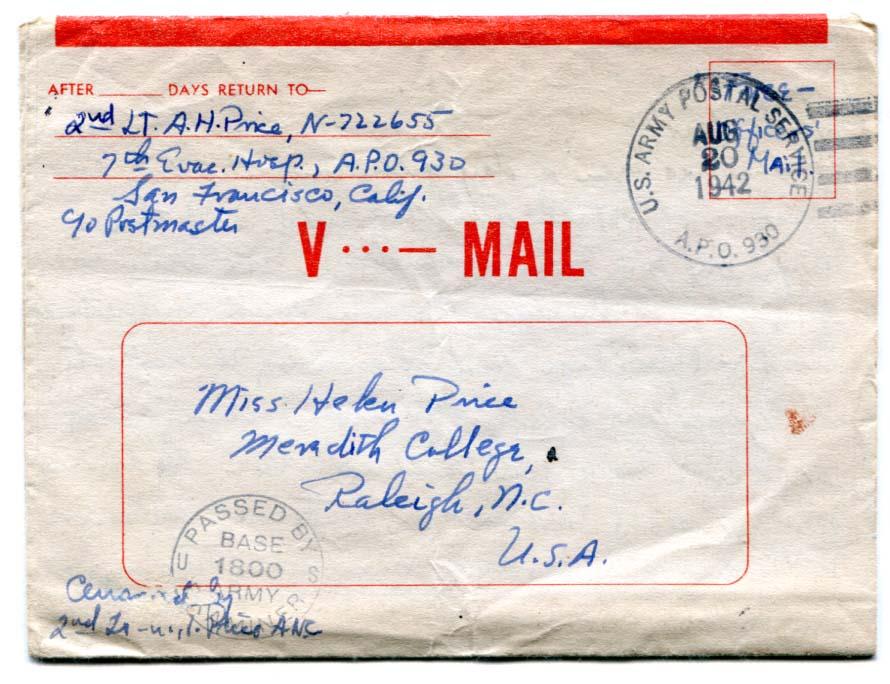 AFTER ______ DAYS RETURN TO—
2nd LT. A.H. Price, N-722655
7th Evac. Hosp., A.P.O. 930
San Francisco, Calif.
c/o Postmaster
Free —
Officers'
Mail.
U.S. ARMY POSTAL SERVICE
AUG
20
1942
A.P.O. 930
V ...— MAIL
Miss Helen Price
Meredith College,
Raleigh, N.C.
U.S.A.
PASSED BY
BASE
U 1800 S
ARMY
EXAMINER
Censored by
2nd Lt. Price ANC